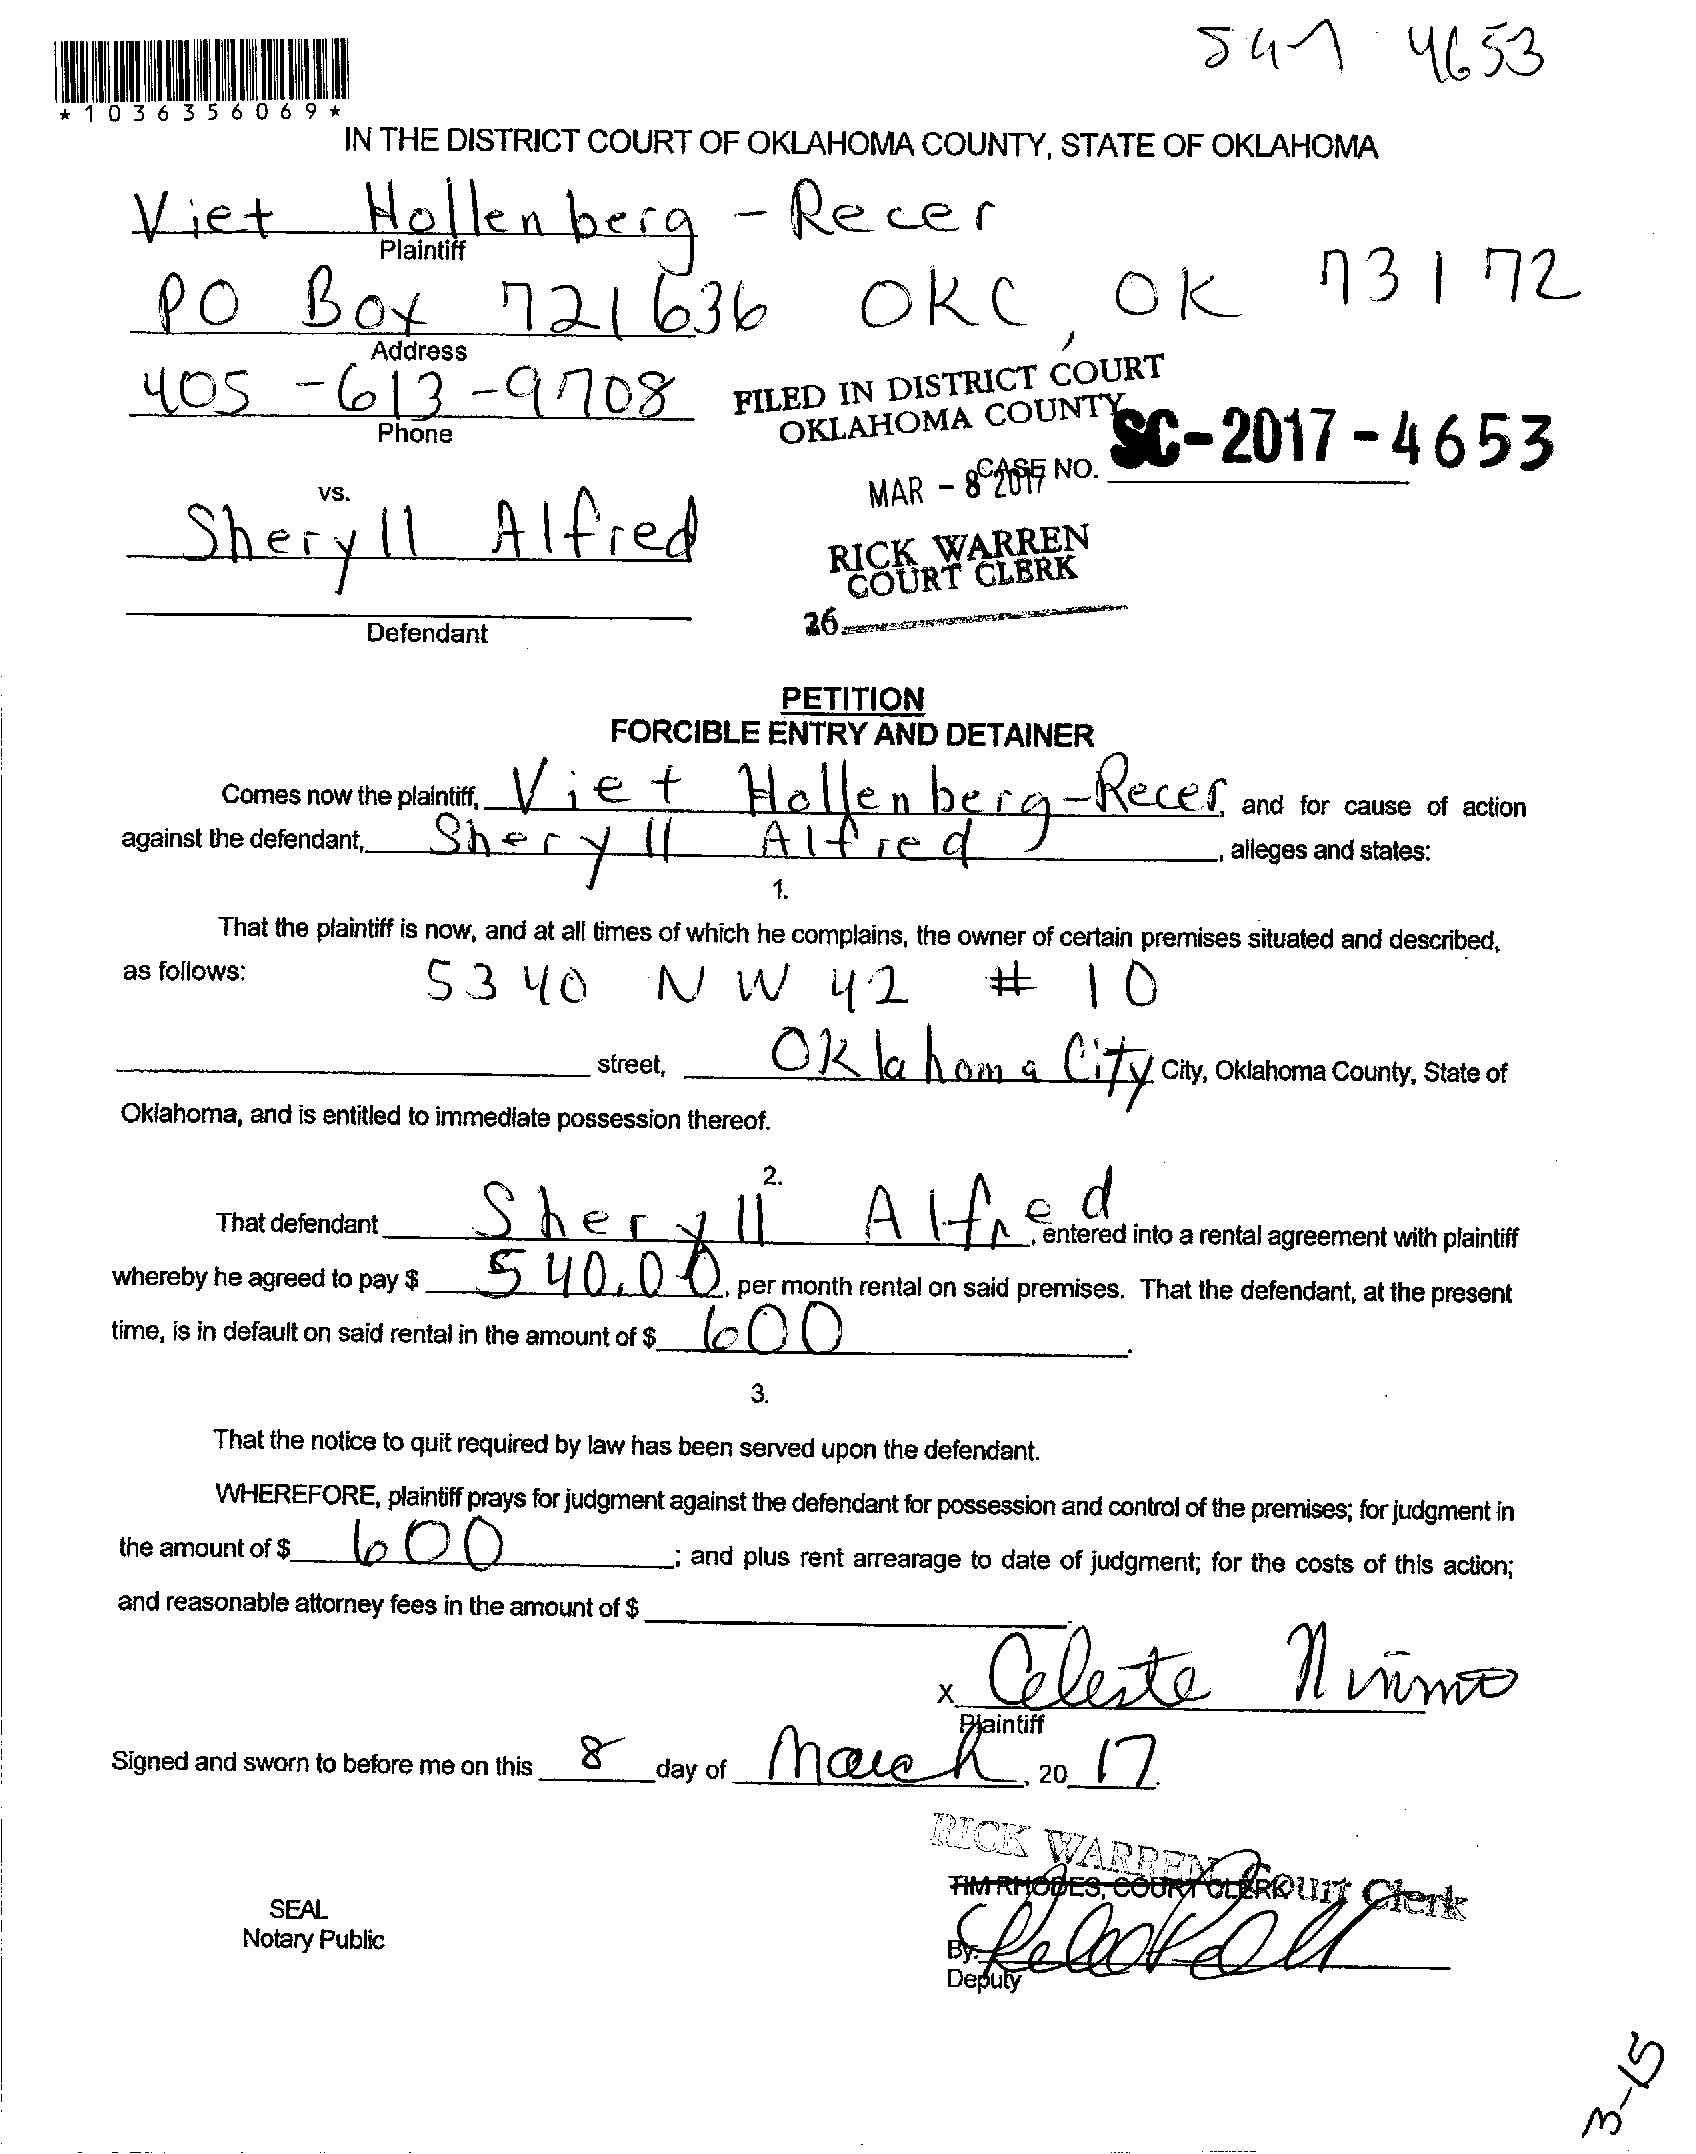 4653
*1036356069*
IN THE DISTRICT COURT OF OKLAHOMA COUNTY, STATE OF OKLAHOMA
Viet Hollenberg-Recer
Plaintiff
PO Box 721636 OKC, OK 73172
Address
405-613-9708
Phone
FILED IN DISTRICT COURT
OKLAHOMA COUNTY
CASE NO. SC-2017-4653
MAR - 8 2017
vs.
Sheryll Alfred
RICK WARREN
COURT CLERK
26
Defendant
PETITION
FORCIBLE ENTRY AND DETAINER
Comes now the plaintiff, Viet Hollenberg-Recer, and for cause of action
against the defendant, Sheryll Alfred, alleges and states:
1.
That the plaintiff is now, and at all times of which he complains, the owner of certain premises situated and described,
as follows: 5340 NW 42 # 10
street, Oklahoma City City, Oklahoma County, State of
Oklahoma, and is entitled to immediate possession thereof.
2.
That defendant Sheryll Alfred, entered into a rental agreement with plaintiff
whereby he agreed to pay $ 540.00, per month rental on said premises. That the defendant, at the present
time, is in default on said rental in the amount of $ 600.
3.
That the notice to quit required by law has been served upon the defendant.
WHEREFORE, plaintiff prays for judgment against the defendant for possession and control of the premises; for judgment in
the amount of $ 600; and plus rent arrearage to date of judgment; for the costs of this action;
and reasonable attorney fees in the amount of $
x Celeste Nimmo
Plaintiff
Signed and sworn to before me on this 8 day of March, 2017.
RICK WARREN Court Clerk
TIM RHODES, COURT CLERK
SEAL
Notary Public
By:
Deputy
3-15